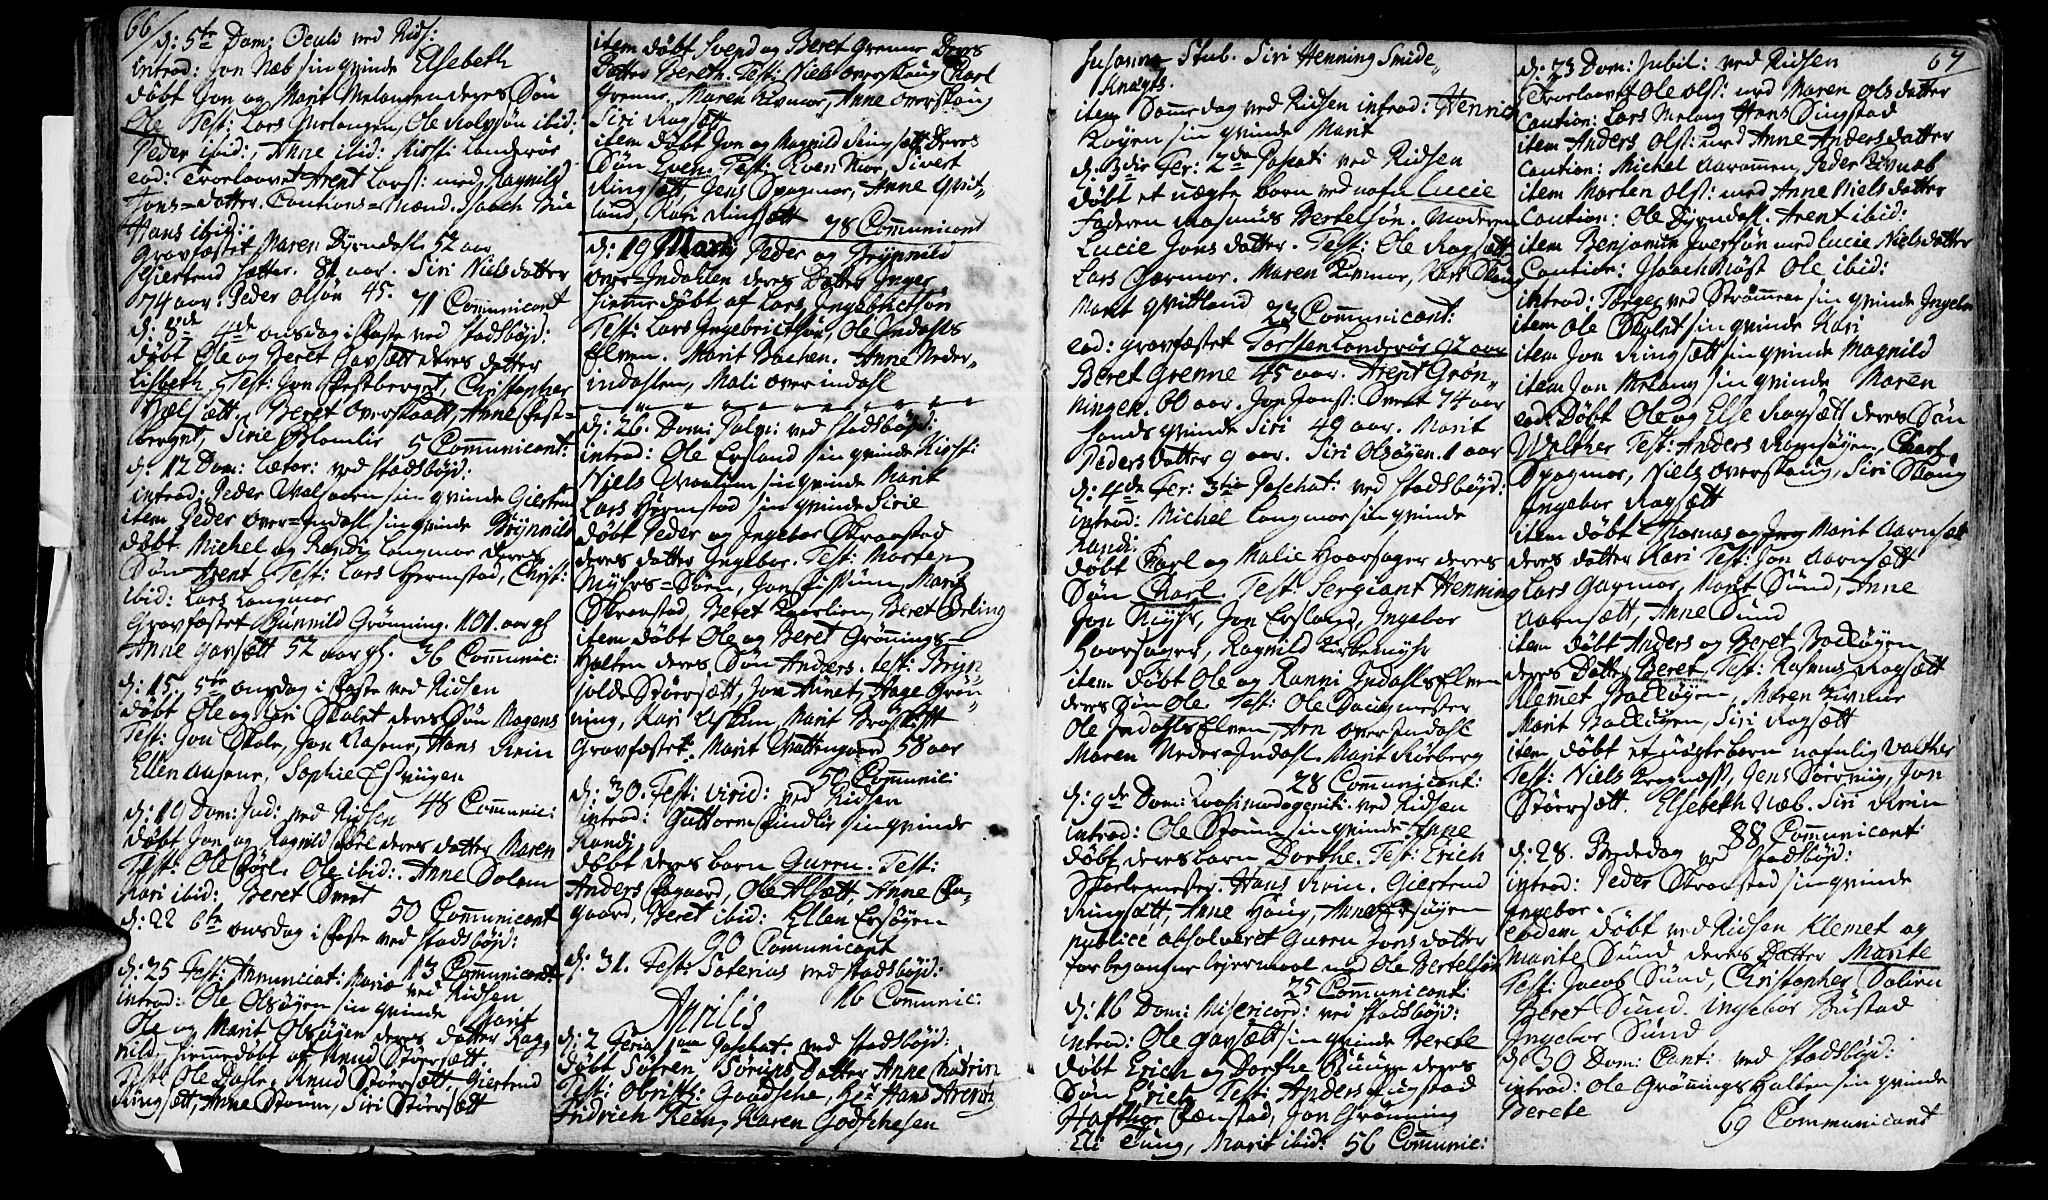 66
d: 5te Dom: Oculi ved Rids:
introd: Jon Næb sin qvinde Elsebeth
døbt Jon og Marit Melangen deres Søn
Ole Test: Lars Melangen, Ole ibid:
Peder ibid:, Anne ibid: Kirsti Landerøe
eod: Trorlaavet Arent Larss: med Ragnild
Jons=datter. Cautions=Mænd. Isaach
Hans ibid:
Gravfæstet Maren Dyrndahl 52 aar
Giertrud Sætter. 81 aar. Siri Nielsdatter
74 aar. Peder Olsøn 45. 71 Communicant
d: 8de 4de onsdag i faste ved Stadsbøjd:
døbt Ole og Beret Gavsætt deres datter
Lisbeth, Test: Jon Christopher
Beret overskaatt, Anne
Sirie Blomlie 5 Communicant:
d: 12 Dom: Lætar: ved Stadsbøjd:
introd: Peder sin qvinde Giertrud
item Peder over=Indahl sin qvinde Brynnild
døbt Michel og Randi Langmoe deres
Søn Arent. Test: Lars Hermstad, Christ:
ibid: Lars Langmoe
Gravfæstet Gunnild Grønning. 101. aar gl:
Anne Gavsætt 52 aar gl. 36 Communic:
d: 15. 5te onsdag i faste ved Ridsen
døbt Ole og Siri Skalet deres Søn Mogens
Test: Jon Skole, Jon Aasene, Hans Rein
Ellen Aasene, Sophie
d: 19 Dom: Jud: ved Ridsen 48 Communic:
døbt Jon og Ragnild deres datter Maren
Test: Ole Ole ibid: Anne Solem
Kari ibid: Beret
50 Communicant
d: 22 6te onsdag i faste ved Stadsbøjd:
13 Communicant
d: 25 Fest: Annunciat: Mariæ ved Ridsen
introd: Ole Olsøyen sin qvinde Marit
Ole og Marit Olsøyen deres datter Rag,
nild, hiemmedøbt af Knud Størsætt
Test: Ole Dahle, Knud Størsætt, Giertrud
Ringsætt, Anne Strøm, Siri Størsætt
item døbt Svend og Beret Grenne deres
Datter Bereth. Test: Niels overskaug Carl
Grenne, Maren Anne overskaug
Siri Ragsætt
item døbt Jon og Magnild Ringsætt deres
Søn Even. Test: Even Moe, Sivert
Ringsætt, Jens Spagmoe, Anne qvit=
land, Kari Ringsætt 78 Communicant
d: 19 Marti Peder og Brynnild
over=Indahlen deres Datter Inger
hiemmedøbt af Lars Ingebrictsøn
Test: Lars Ingebrictsøn, Ole Indahls
Elven. Marit Bachen. Anne Neder,
indahlen, Mali over indahl
d: 26. Dom: Palm: ved Stadsbøjd:
introd: Ole Ersland sin qvinde Kirst:
Niels sin qvinde Marit
Lars Hermstad sin qvinde Sirie
døbt Peder og Ingebor Skronstad
deres datter Ingebor. Test: Morten
Myhrs=Søren, Jon Fissum, Marit
Skronstad, Beret Beret
item døbt Ole og Beret Grønnings
Halten deres Søn Anders. Test: Bryn
jolds Størsætt, Jon Hage Grøn
ning, Kari Marit
Gravfæstet. Marit Vattengaard 58 aar
50 Communic:
d: 30. Fest: virid: ved Ridsen
introd: Guttorm sin qvinde
Randi
døbt deres barn Guren. Test:
Anders Ole Alsætt, Anne
gaard, Beret ibid: Ellen Ersøyen
90 Communicant
d: 31. Fest: Soterias ved Stadsbøjd:
16 Communic:
Aprilis
d: 2 Feria 1ma Paschat. ved Stadsbøjd:
døbt Søfren Sørups Datter Anne Cathrin
Test: obristl: Goodsche, Hr Hans Arentz
Fridrich Keen, Karen Godschesen
Susanna Stub. Siri Henning Smide,
Knægts.
item Samedag ved Ridsen introd: Hennic
Røyen sin qvinde Marit
d: 3die Fer: 2da Paschat: ved Ridsen
døbt et uægte barn ved nafn Lucie
Faderen Rasmus Bertelsøn. Moderen
Lucie Jonsdatter. Test: Ole Ragsætt,
Lars Garmoe. Maren Lars Skaug
Marit qvitland 23 Communicant:
eod: gravfæstet Torsten Landerøe 92 aar
Beret Grenne 45 aar. Arent Grøn,
ningen. 60 aar. Jon Jonss: 74 aar
hands qvinde Siri 49 aar. Marit
Pedersdatter 9 aar. Siri Olsøyen. 1 aar
d: 4de Fer: 3tia Paschat: ved Stadsbøjd:
introd: Michel Langmoe sin qvinde
Randi
døbt Carl og Malie Haarsager deres
Søn Charl. Test: Sergiant Henning
Jon Myhr, Jon Ersland, Ingebor
Haarsager, Ragnild Kirkemyhr
item døbt Ole og Ranni Indahls Elven
deres Søn Ole. Test: Ole
Ole Indahls Elven, over Indahl
Maren Neder=Indahl. Marit Rørberg
28 Communicant:
d: 9de Dom: Quasimodogeniti: ved Ridsen
introd: Ole Strøm sin qvinde Anne
døbt deres barn Dorthe. Test: Erich
Skolemester. Hans Rein. Giertrud
Ringsætt, Anne Haug, Anne Ersøyen
publicè absolveret Guren Jonsdatter
for begangne leyermaal med Ole Bertelsøn
25 Communicant:
d: 16 Dom: Misericord: ved Stadsbøjd:
introd: Ole Gavsætt sin qvinde Berete
døbt Erich og Dorthe deres
Søn Erich Test: Anders
Jon Grønning
Eli Marit ibid: 56 Communic:
67
d: 23 Dom: Jubil: ved Ridsen
Trorlaavet Ole Ols: med Maren Olsdatter
Caution: Lars Melang Hans Singstad
item Anders Ols: med Anne Andersdatter
Caution: Michel Aarommen, Peder
item Morten Ols: med Anne Nielsdatter
Caution: Ole Dyrndahl. Arent ibid:
item Benjamin Iversøn med Lucie Nielsdatter
Caution: Isaach Røst Ole ibid:
introd: Torger ved Strømmen sin qvinde Ingebor
item Ole Skalet sin qvinde Kari
item Jon Ringsætt sin qvinde Magnild
item Jon Melang sin qvinde Maren
eod: døbt Ole og Else Ragsætt deres Søn
Walther Test: Anders Ramsøyen, Charl
Spagmoe, Niels overskaug, Siri Skaug
Ingebor Ragsætt
item døbt Thomas og Marit Aarnsætt
deres datter Kari Test: Jon Aarnsætt
Lars Gagmoe, Marit Sund, Anne
Aarnsætt, Anne Sund
item døbt Anders og Beret Badløyen
deres Datter Beret. Test: Rasmus Ragsætt
Klemet Badløyen, Maren
Marit Badløyen, Siri Ragsætt
item døbt et uægte barn nafnlig Walther
Test: Niels Jens Jon
Størsætt. Elsebeth Næb. Siri Rein
88 Communicant:
d: 28. Bededag ved Stadsbøjd:
introd: Peder Skronstad sin qvinde
Ingebor.
eodem døbt ved Ridsen Klemet og
Marite Sund deres Datter Marite
Test: Jacob Sund, Christopher Solem
Beret Sund. Ingebor Bustad
Ingebor Sund
d: 30 Dom: Cant: ved Stadsbøjd:
introd: Ole Grønnings Halten sin qvinde
Berete
69 Communicant